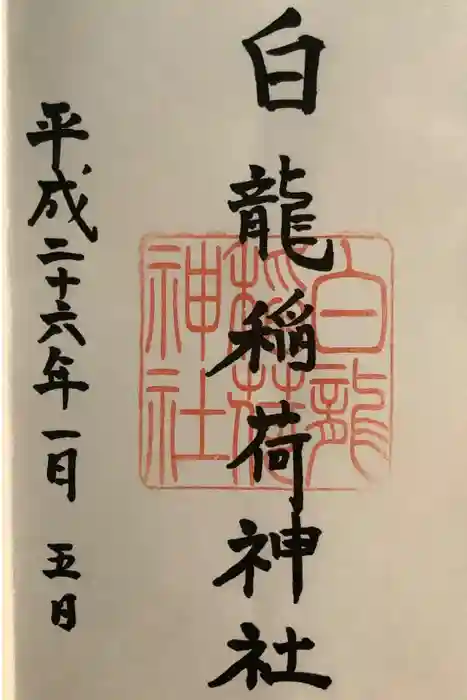 白龍稲荷神社
白龍
稲荷
神社
平成二十六年一月五日